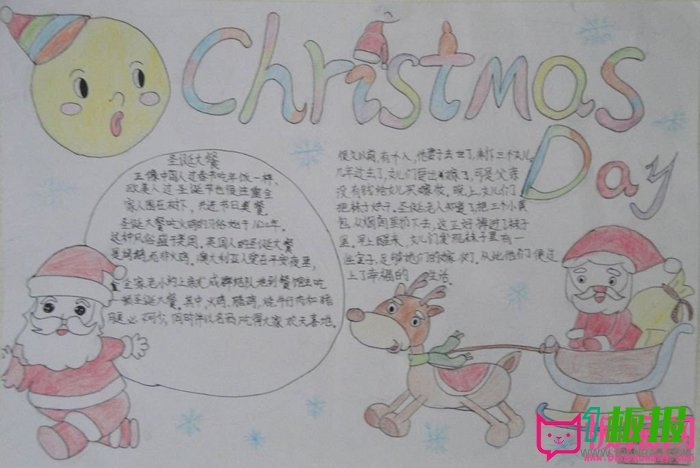 Christmas
Day
圣诞大餐
正像中国人过春节吃年饭一样、
欧美人过圣诞节也很注重全
家人围在树下，共进节日美餐
圣诞大餐吃火鸡的习俗始于1620年。
这种风俗盛于美国。英国人的圣诞大餐
是烤鹅，而非火鸡。澳大利亚人爱在平安夜里，
全家老小约上亲友成群结队地到餐馆去吃
一顿圣诞大餐。其中，火鸡、腊鸡、烧牛仔肉和猪
腿必不可少，同时伴以名酒，吃得大家欢天喜地。
很久以前，有个人，他妻子去世了，剩下三个女儿
几年过去了，女儿们要出嫁了，可是父亲
没有钱给女儿买嫁妆，晚上，女儿们
把袜子
包，从烟囱里扔下去，这正好掉进了袜子
里。早上醒来，女儿们发现袜子里有一
些金子，足够她们的嫁妆了。从此他们便过
上了幸福的生活。
板报